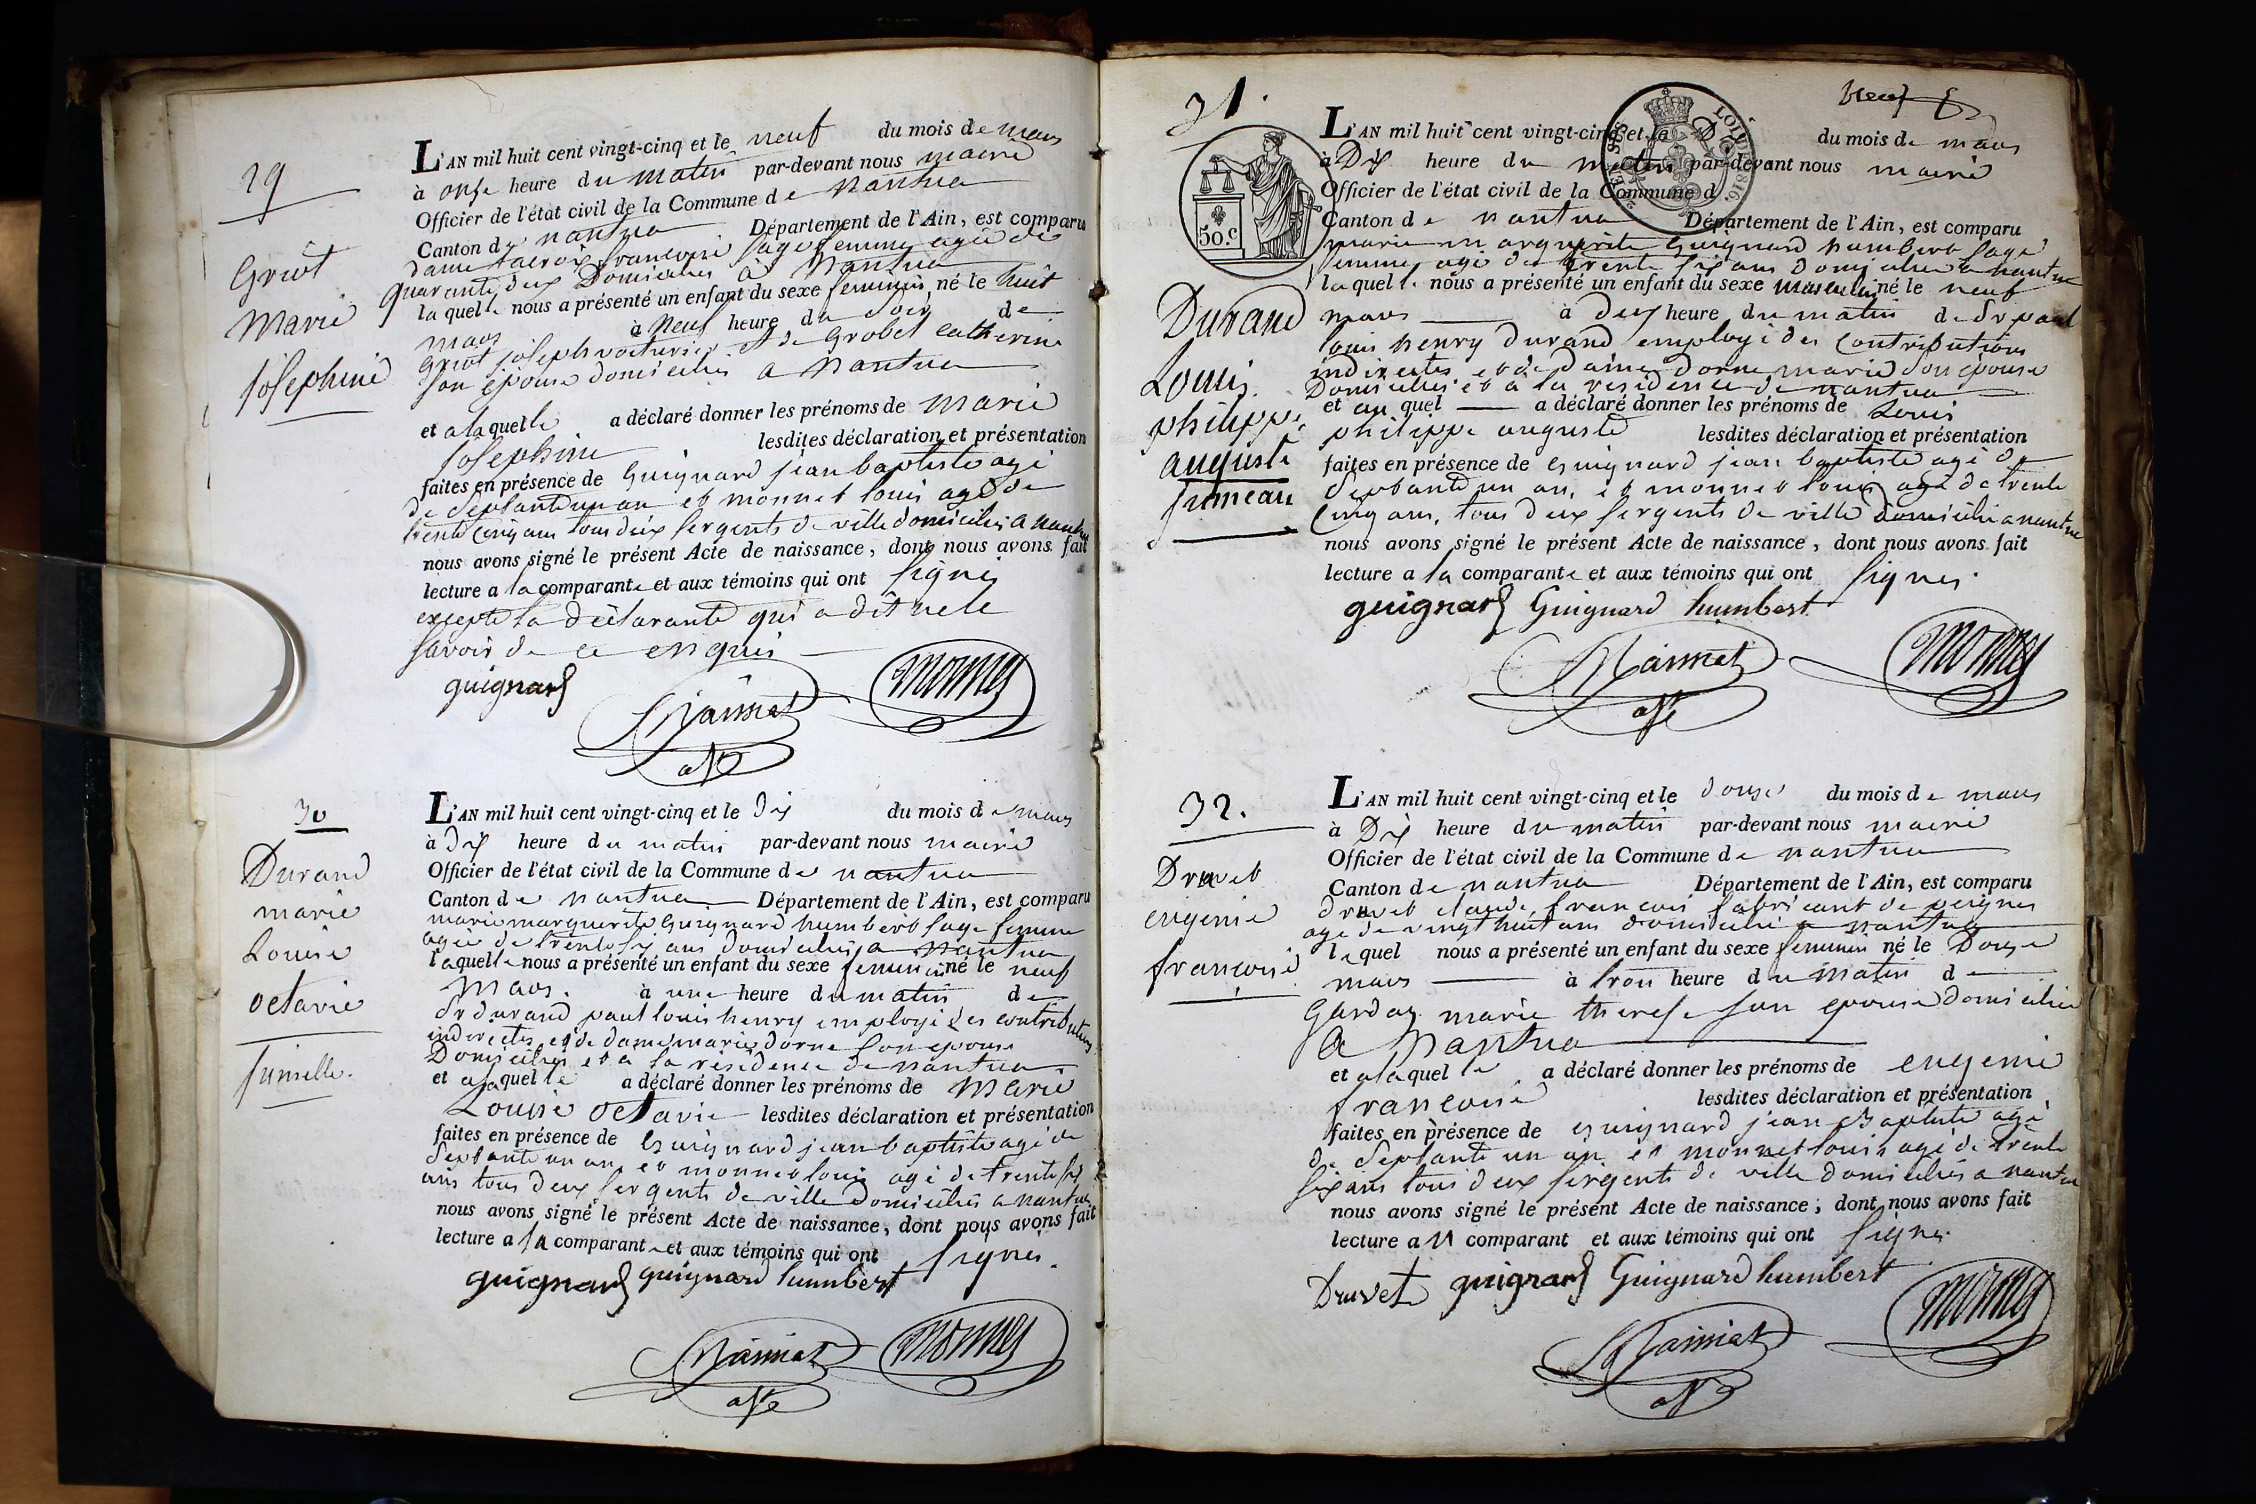 29
Griot
Marie
Josephine
L'AN mil huit cent vingt-cinq et le neuf du mois de mars
à onze heure du matin par-devant nous maire
Officier de l'état civil de la Commune de nantua
Canton de nantua Département de l'Ain, est comparu
dame Lacroix francoise sage femme agée de
quarante deux Domiciliée à Nantua
laquelle nous a présenté un enfant du sexe feminin, né le huit
mars à neuf heure du soir de
griot joseph voiturier et de Grobet catherine
son épouse domiciliés a Nantua
et a laquelle a déclaré donner les prénoms de Marie
Josephine lesdites déclaration et présentation
faites en présence de Guignard jean baptiste agé
de septante un an et monnet louis agé de
trente cinq ans tous deux sergents de ville domiciliés a nantua
nous avons signé le présent Acte de naissance, dont nous avons fait
lecture a la comparante et aux témoins qui ont signés
excepté la déclarante qui a dit ne le
savoir de ce enquis
guignard
monnet
30
Durand
marie
Louise
octavie
jumelle.
L'AN mil huit cent vingt-cinq et le dix du mois de mars
à dix heure du matin par-devant nous maire
Officier de l'état civil de la Commune de nantua
Canton de nantua Département de l'Ain, est comparu
marie marguerite Guignard humbert sage femme
agée de trente six ans domiciliée a nantua
laquelle nous a présenté un enfant du sexe feminin né le neuf
mars. à une heure du matin de
Sr durand paul louis henry employé des contributions
indirectes et de dame marie dorne son epouse
Domiciliés et a la résidence de nantua
et a laquelle a déclaré donner les prénoms de Marie
Louise octavie lesdites déclaration et présentation
faites en présence de Guignard jean baptiste agé de
septante un an et monnet louis agé de trente six
ans tous deux sergents de ville domiciliés a nantua
nous avons signé le présent Acte de naissance, dont nous avons fait
lecture a la comparante et aux témoins qui ont signés.
guignard guignard humbert
monnet
31.
neuf
50.C
Durand
Louis
philippe
auguste
jumeau
L'AN mil huit cent vingt-cinq et le Dix du mois de mars
à Dix heure du matin par-devant nous maire
Officier de l'état civil de la Commune d
Canton de nantua Département de l'Ain, est comparu
marie marguerite Guignard humbert sage
femme agé de trente six ans domiciliée a nantua
laquelle nous a présenté un enfant du sexe masculin né le neuf
mars à deux heure du matin de Sr paul
louis henry durand employé des contributions
indirectes et de dame dorne marie son epouse
Domiciliés et à la résidence de nantua
et au quel a déclaré donner les prénoms de Louis
philippe auguste lesdites déclaration et présentation
faites en présence de Guignard jean baptiste agé de
septante un an, et monnet louis agé de trente
cinq ans, tous deux sergents de ville domiciliés a nantua
nous avons signé le présent Acte de naissance, dont nous avons fait
lecture a la comparante et aux témoins qui ont signés.
guignard Guignard humbert
monnet
32.
Druvet
eugenie
françoise
L'AN mil huit cent vingt-cinq et le douze du mois de mars
à Dix heure du matin par-devant nous maire
Officier de l'état civil de la Commune de nantua
Canton de nantua Département de l'Ain, est comparu
druvet claude françois fabricant de peignes
agé de vingt huit ans domicilié a nantua
lequel nous a présenté un enfant du sexe feminin né le Douze
mars à trois heure du matin de
Gardaz marie therese son epouse domiciliée
a Nantua
et a laquelle a déclaré donner les prénoms de eugenie
francoise lesdites déclaration et présentation
faites en présence de guignard jean Baptiste agé
de septante un an et monnet louis agé de trente
six ans tous deux sergents de ville domiciliés a nantua
nous avons signé le présent Acte de naissance; dont nous avons fait
lecture au comparant et aux témoins qui ont signés.
Druvet guignard Guignard humbert
monnet